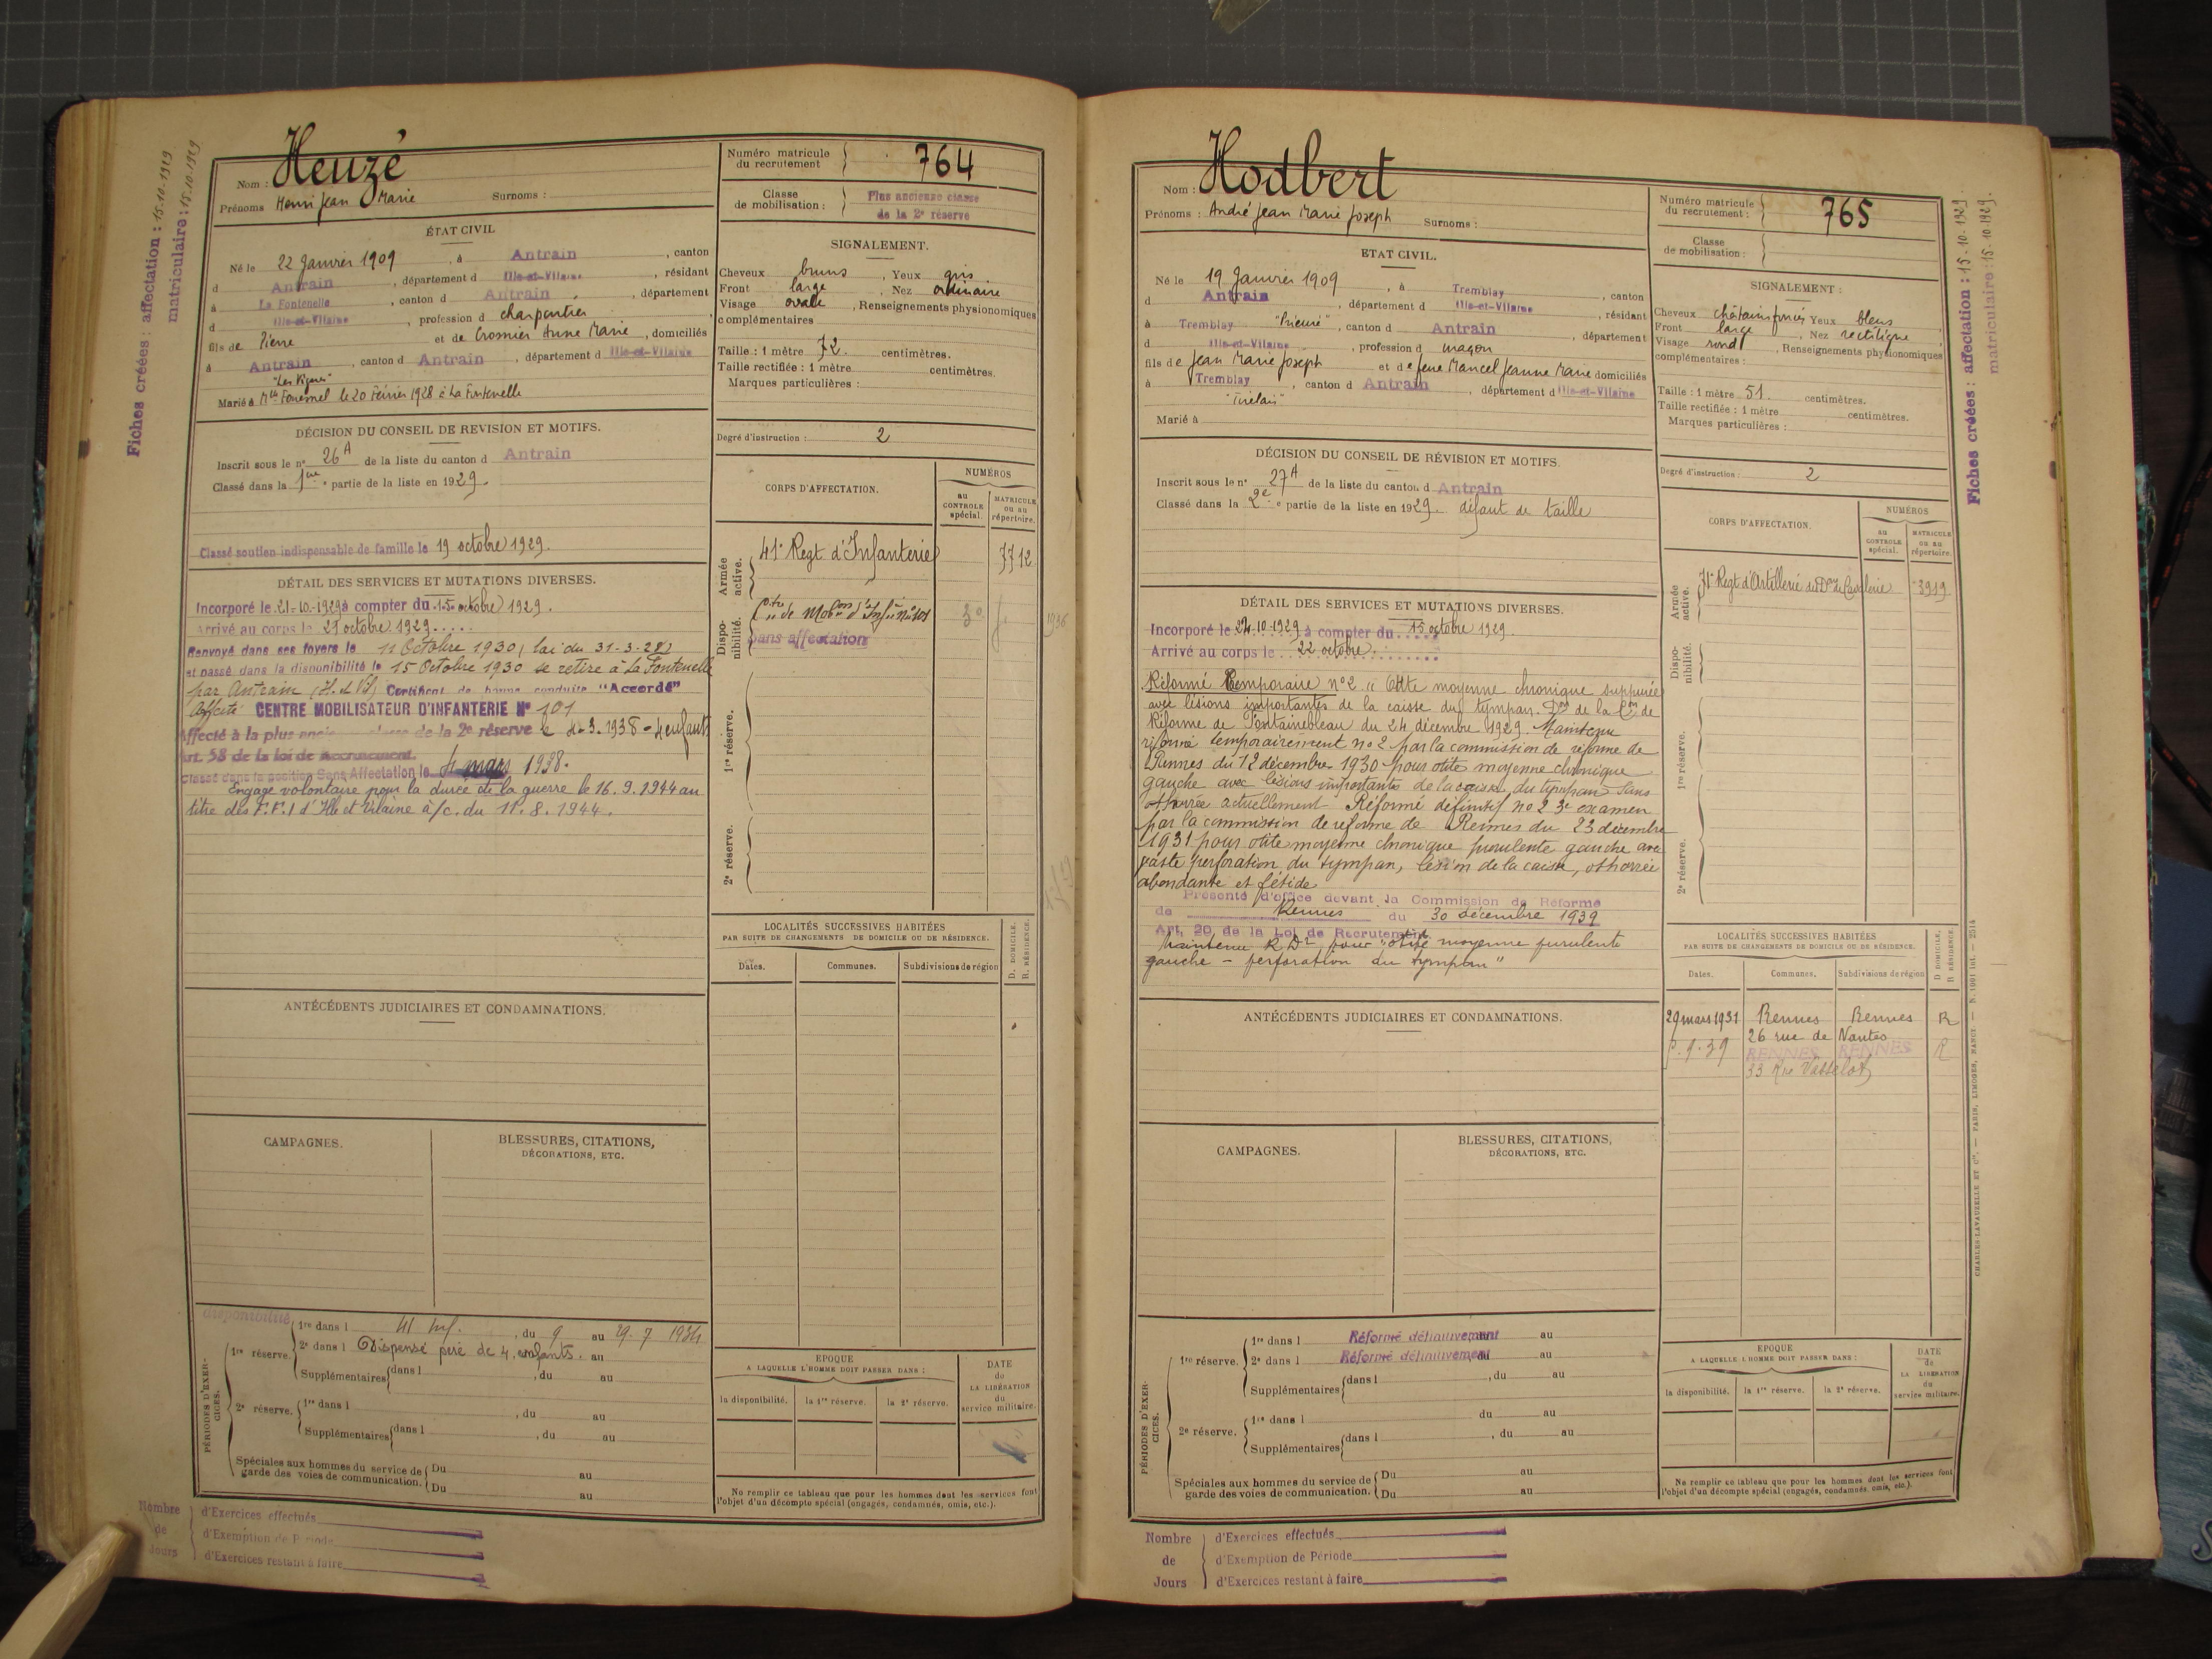 Fiches créées : affectation : 15-10-1929
matriculaire : 15-10-1929
Nom : Heuzé
Prénoms Henri Jean Marie Surnoms :
Numéro matricule du recrutement 764
Classe de mobilisation : Plus ancienne classe de la 2e réserve
ÉTAT CIVIL
Né le 22 Janvier 1909, à Antrain, canton
d Antrain, département d Ille-et-Vilaine, résidant
à La Fontenelle, canton d Antrain, département
d Ille-et-Vilaine, profession d charpentier
fils de Pierre et de Crosnier Anne Marie, domiciliés
à Antrain, canton d Antrain, département d Ille-et-Vilaine
"Les Vignes"
Marié à Mlle Fouesnel le 20 Février 1928 à La Fontenelle
SIGNALEMENT.
Cheveux bruns, Yeux gris
Front large, Nez ordinaire
Visage ovale, Renseignements physionomiques
complémentaires
Taille : 1 mètre 72. centimètres.
Taille rectifiée : 1 mètre centimètres.
Marques particulières :
Degré d'instruction : 2
DÉCISION DU CONSEIL DE REVISION ET MOTIFS.
Inscrit sous le no 26 A de la liste du canton d Antrain
Classé dans la 1ère partie de la liste en 1929.
Classé soutien indispensable de famille le 19 octobre 1929.
DÉTAIL DES SERVICES ET MUTATIONS DIVERSES.
Incorporé le 21-10-1929 à compter du 15 octobre 1929.
Arrivé au corps le 21 octobre 1929
Renvoyé dans ses foyers le 11 Octobre 1930, loi du 31-3-28)
et passé dans la disponibilité le 15 Octobre 1930 se retire à La Fontenelle
par Antrain (Il. et Vil) Certificat de bonne conduite "Accordé"
Affecté CENTRE MOBILISATEUR D'INFANTERIE No 101
Affecté à la plus classe de la 2e réserve le 4-3.1938 - 4 enfants
Art. 58 de la loi de Recrutement.
Classé dans la position Sans Affectation le 4 mars 1938.
Engagé volontaire pour la durée de la guerre le 16.9.1944 au
titre des F.F.I d'Ille et Vilaine à/c. du 1er.8.1944.
CORPS D'AFFECTATION.
NUMÉROS
au CONTROLE spécial.
MATRICULE ou au répertoire.
Armée active.
41e Regt d'Infanterie 7712
Disponibilité.
Ctre de Mobon d'Infie no 101
Sans affectation
1936
1re réserve.
2e réserve.
LOCALITÉS SUCCESSIVES HABITÉES
PAR SUITE DE CHANGEMENTS DE DOMICILE OU DE RÉSIDENCE.
D. DOMICILE.
R. RÉSIDENCE.
Dates. Communes. Subdivisions de région
ANTÉCÉDENTS JUDICIAIRES ET CONDAMNATIONS.
CAMPAGNES.
BLESSURES, CITATIONS,
DÉCORATIONS, ETC.
PÉRIODES D'EXERCICES.
disponibilité
1re réserve.
1re dans l 41 Inf., du 9 au 29.7 1934
2e dans l Dispensé père de 4 enfants. au
Supplémentaires dans l, du au
2e réserve.
1re dans l, du au
Supplémentaires dans l, du au
Spéciales aux hommes du service de garde des voies de communication.
Du au
Du au
EPOQUE
A LAQUELLE L'HOMME DOIT PASSER DANS :
la disponibilité. la 1re réserve. la 2e réserve.
DATE de LA LIBÉRATION du service militaire.
Ne remplir ce tableau que pour les hommes dont les services font
l'objet d'un décompte spécial (engagés, condamnés, omis, etc.).
Nombre de Jours
d'Exercices effectués
d'Exemption de Période
d'Exercices restant à faire
Nom : Hodbert
Prénoms : André Jean Marie Joseph Surnoms :
Numéro matricule du recrutement : 765
Classe de mobilisation :
Fiches créées : affectation : 15-10-1929.
matriculaire : 15-10-1929.
ETAT CIVIL.
Né le 19 Janvier 1909, à Tremblay, canton
d Antrain, département d Ille-et-Vilaine, résidant
à Tremblay "Prieuré", canton d Antrain, département
d Ille-et-Vilaine, profession d maçon
fils de Jean Marie Joseph et de feue Mancel Jeanne Marie domiciliés
à Tremblay, canton d Antrain, département d Ille-et-Vilaine
Marié à
SIGNALEMENT :
Cheveux châtains foncés Yeux bleus
Front large, Nez rectiligne
Visage rond, Renseignements physionomiques
complémentaires :
Taille : 1 mètre 51. centimètres.
Taille rectifiée : 1 mètre centimètres.
Marques particulières :
Degré d'instruction : 2
DÉCISION DU CONSEIL DE RÉVISION ET MOTIFS.
Inscrit sous le no 27 A de la liste du canton d Antrain
Classé dans la 2e partie de la liste en 1929. défaut de taille
DÉTAIL DES SERVICES ET MUTATIONS DIVERSES.
Incorporé le 22-10-1929 à compter du 15 octobre 1929
Arrivé au corps le 22 octobre.
Réformé temporaire no 2 "Otite moyenne chronique suppurée
avec lésions importantes de la caisse du tympan. Don de la Con de
Réforme de Fontainebleau du 24 décembre 1929. Maintenu
réformé temporairement no 2 par la commission de réforme de
Rennes du 12 décembre 1930 pour otite moyenne chronique
gauche avec lésions importantes de la caisse, du tympan sans
othorrée actuellement Réformé définitif no 2 3e examen
par la commission de réforme de Rennes du 23 décembre
1931 pour otite moyenne chronique purulente gauche avec
vaste perforation du tympan, lésion de la caisse, othorrée
abondante et fétide
Présenté d'office devant la Commission de Réforme
de Rennes du 30 décembre 1939
Art. 20 de la Loi de Recrutement
Maintenu R D 2 pour "otite moyenne purulente
gauche - perforation du tympan"
CORPS D'AFFECTATION.
NUMÉROS
au CONTROLE spécial.
MATRICULE ou au répertoire.
Armée active.
71e Regt d'Artillerie de Don de Cavalerie 3919
Disponibilité.
1re réserve.
2e réserve.
LOCALITÉS SUCCESSIVES HABITÉES
PAR SUITE DE CHANGEMENTS DE DOMICILE OU DE RÉSIDENCE.
D DOMICILE.
R RÉSIDENCE.
Dates. Communes. Subdivisions de région
29 mars 1931 Rennes Rennes R
26 rue de Nantes
9.39 RENNES RENNES R
33 Rue Vasselot
ANTÉCÉDENTS JUDICIAIRES ET CONDAMNATIONS.
CAMPAGNES.
BLESSURES, CITATIONS,
DÉCORATIONS, ETC.
PÉRIODES D'EXERCICES.
1re réserve.
1re dans l Réformé définitivement au
2e dans l Réformé définitivement du au
Supplémentaires dans l, du au
2e réserve.
1re dans l du au
Supplémentaires dans l, du au
Spéciales aux hommes du service de garde des voies de communication.
Du au
Du au
EPOQUE
A LAQUELLE L'HOMME DOIT PASSER DANS :
la disponibilité. la 1re réserve. la 2e réserve.
DATE de LA LIBÉRATION du service militaire.
Ne remplir ce tableau que pour les hommes dont les services font
l'objet d'un décompte spécial (engagés, condamnés, omis, etc.).
CHARLES-LAVAUZELLE ET Cie. — PARIS, LIMOGES, NANCY — N. 1091 int. — 2514
Nombre de Jours
d'Exercices effectués
d'Exemption de Période
d'Exercices restant à faire